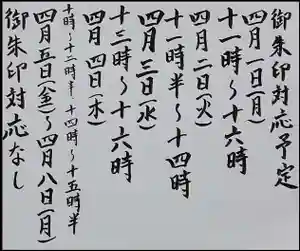 御朱印対応予定
四月一日(月)
十一時〜十六時
四月二日(火)
十一時半〜十四時
四月三日(水)
十三時〜十六時
四月四日(木)
十時〜十二時半・十四時〜十五時半
四月五日(金)〜四月八日(月)
御朱印対応なし